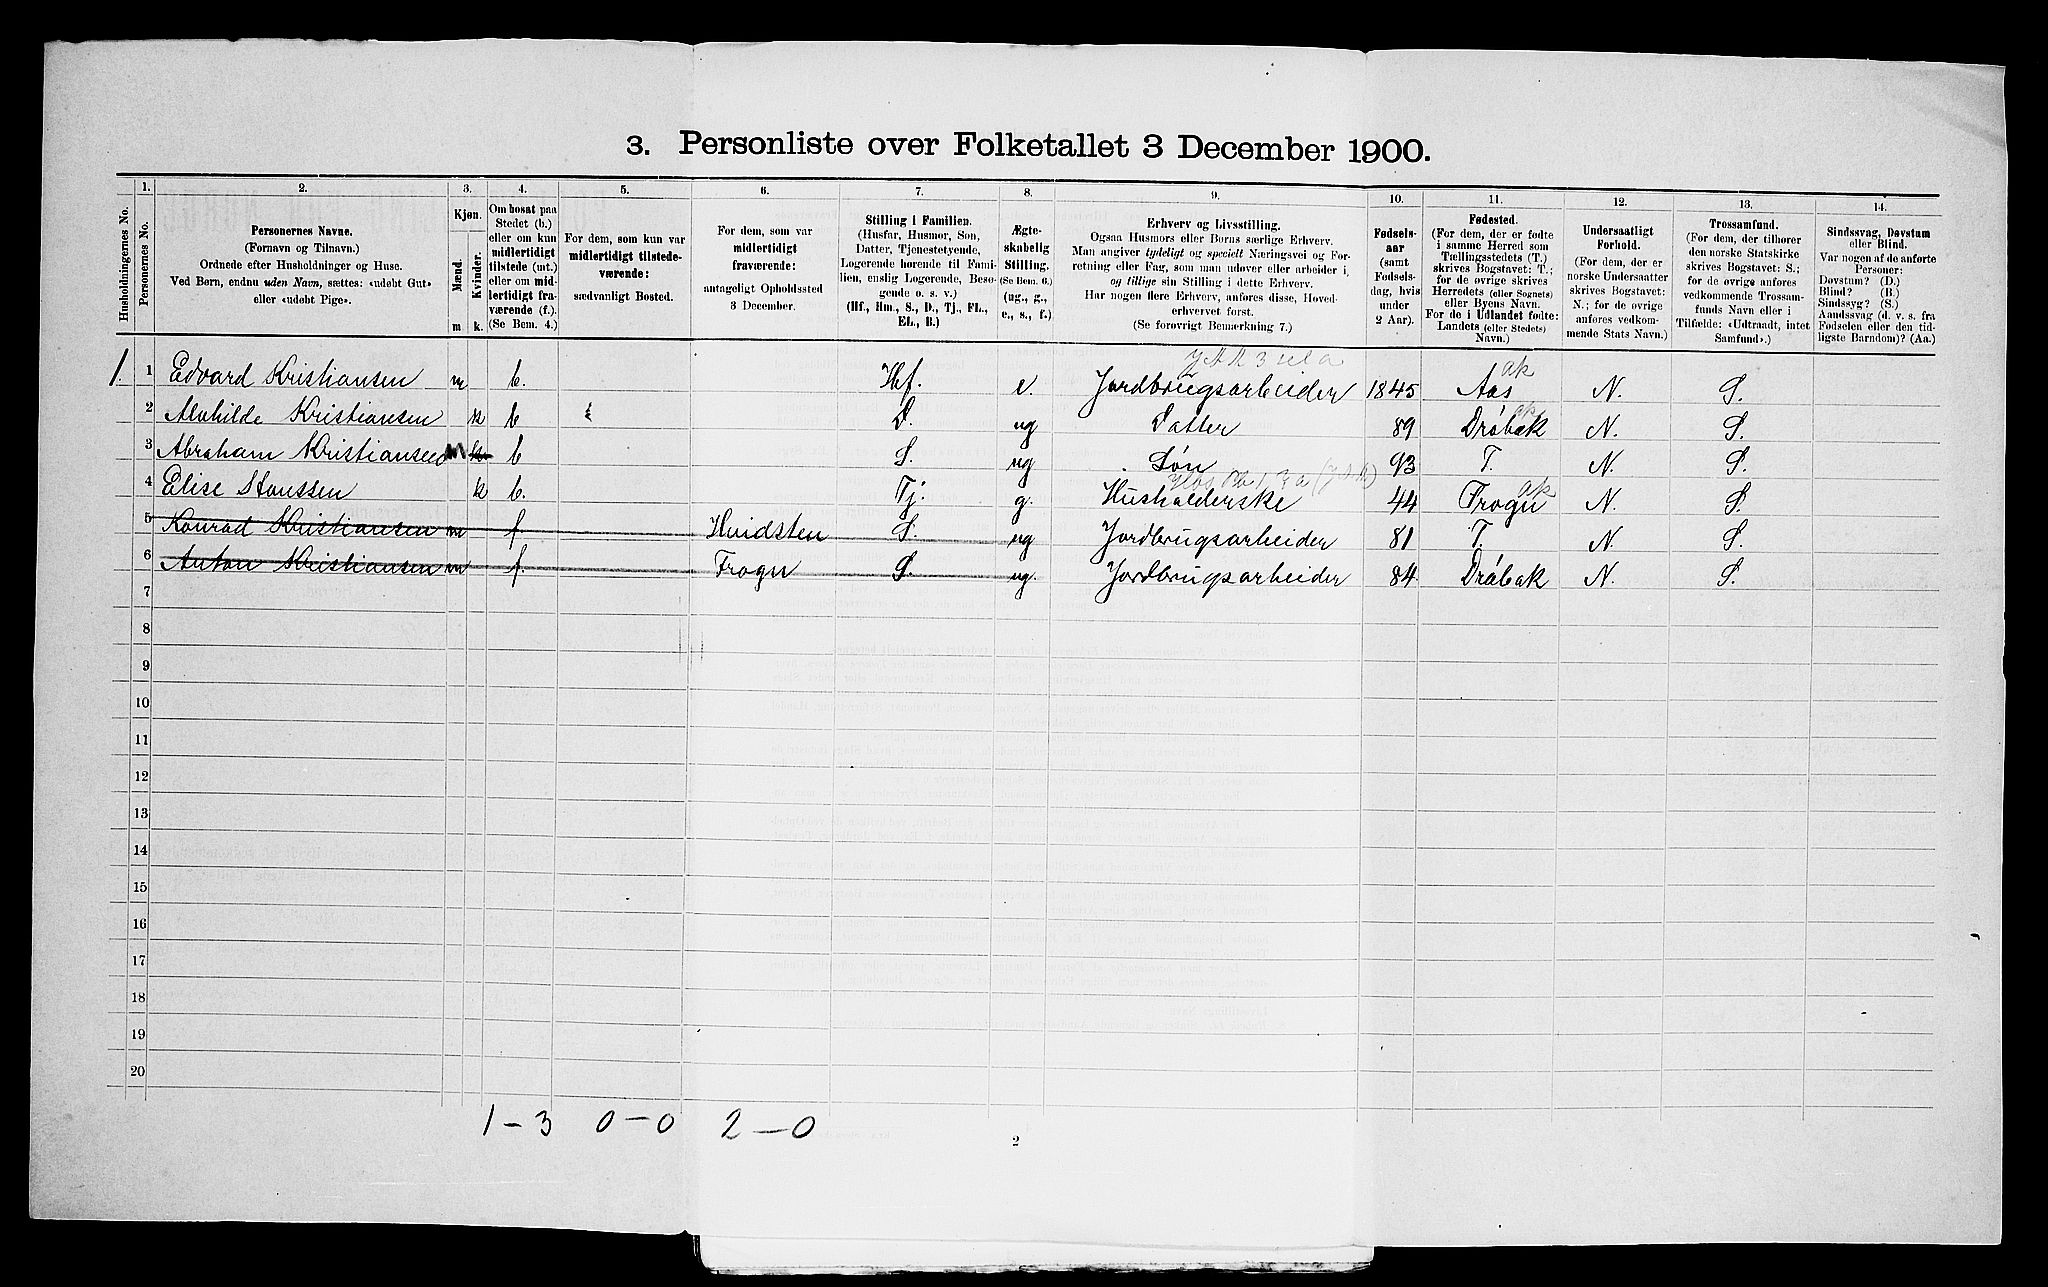 3. Personliste over Folketallet 3 December 1900.
Husholdningernes No.
1. Personernes No.
2. Personernes Navne. (Fornavn og Tilnavn.) Ordnede efter Husholdninger og Huse. Ved Børn, endnu uden Navn, sættes: «udøbt Gut» eller «udøbt Pige».
3. Kjøn. Mænd. m Kvinder. k.
4. Om bosat paa Stedet (b.) eller om kun midlertidigt tilstede (mt.) eller om midlertidigt fraværende (f.). (Se Bem. 4.)
5. For dem, som kun var midlertidigt tilstedeværende: sædvanligt Bosted.
6. For dem, som var midlertidigt fraværende: antageligt Opholdssted 3 December.
7. Stilling i Familien. (Husfar, Husmor, Søn, Datter, Tjenestetyende, Logerende hørende til Familien, enslig Logerende, Besøgende o. s. v.) (Hf., Hm., S., D., Tj., FL., EL., B.)
8. Ægteskabelig Stilling. (Se Bem. 6.) (ug., g., e., s., f.)
9. Erhverv og Livsstilling. Ogsaa Husmors eller Børns særlige Erhverv. Man angiver tydeligt og specielt Næringsvei og Forretning eller Fag, som man udøver eller arbeider i, og tillige sin Stilling i dette Erhverv. Har nogen flere Erhverv, anføres disse, Hovederhvervet først. (Se forøvrigt Bemærkning 7.)
10. Fødselsaar (samt Fødselsdag, hvis under 2 Aar).
11. Fødested. (For dem, der er fødte i samme Herred som Tællingsstedets (T.) skrives Bogstavet: T.; for de øvrige skrives Herredets (eller Sognets) eller Byens Navn. For de i Udlandet fødte: Landets (eller Stedets) Navn.)
12. Undersaatligt Forhold. (For dem, der er norske Undersaatter skrives Bogstavet: N.; for de øvrige anføres vedkommende Stats Navn.)
13. Trossamfund. (For dem, der tilhører den norske Statskirke skrives Bogstavet: S.; for de øvrige anføres vedkommende Trossamfunds Navn eller i Tilfælde: «Udtraadt, intet Samfund».)
14. Sindssvag, Døvstum eller Blind. Var nogen af de anførte Personer: Døvstum? (D.) Blind? (B.) Sindssyg? (S.) Aandssvag (d. v. s. fra Fødselen eller den tidligste Barndom)? (Aa.)
1. 1 Edvard Kristiansen m b. Hf. e. Jordbrugsarbeider 1845 Aas ak N. S.
2 Alvhilde Kristiansen k b D. ug Datter 89 Drøbak ak N. S.
3 Abraham Kristiansen m b S. ug Søn 93 T. N. S.
4 Elise Hanssen k b. Tj. g. Husholderske 44 Frogn ak N. S.
5 Konrad Kristiansen m f Hvidsten S. ug Jordbrugsarbeider 81 T. N. S.
6 Anton Kristiansen m f. Frogn S. ug. Jordbrugsarbeider 84. Drøbak N. S.
7
8
9
10
11
12
13
14
15
16
17
18
19
20
1 - 3 0 - 0 2 - 0
2